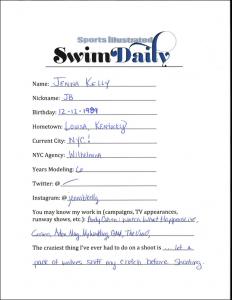 Sports Illustrated
Swim Daily
Name: JENNA KELLY
Nickname: JB
Birthday: 12-12-1989
Hometown: Louisa, Kentucky
Current City: NYC!
NYC Agency: Wilhelmina
Years Modeling: 6
Twitter: @
Instagram: @ jennabkelly
You may know my work in (campaigns, TV appearances,
runway shows, etc.): Andy Cohen: Watch What Happens Live,
Cosmo, Mag, 
The craziest thing I've ever had to do on a shoot is ... let a
pack of wolves sniff my crotch before shooting.